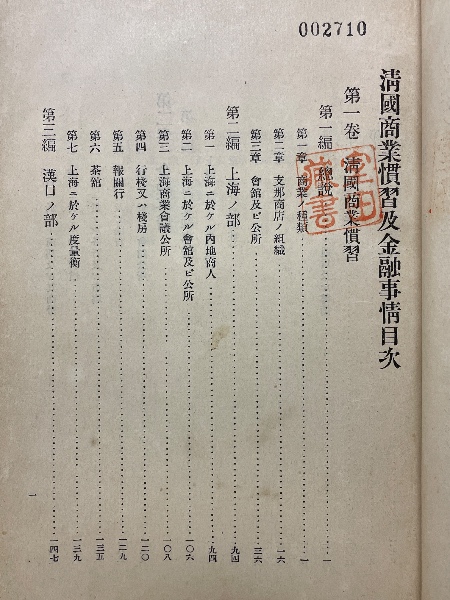 002710
淸國商業慣習及金融事情目次
第一卷 淸國商業慣習
第一編 總說……一
第一章 商業ノ種類……一
第二章 支那商店ノ組織……一六
第三章 會館及ビ公所……三六
第二編 上海ノ部……九四
第一 上海ニ於ケル內地商人……九四
第二 上海ニ於ケル會館及ビ公所……一〇六
第三 上海商業會議公所……一〇八
第四 行棧又ハ棧房……一二〇
第五 報關行……一二九
第六 茶館……一三五
第七 上海ニ於ケル度量衡……一三九
第三編 漢口ノ部……一四七
一